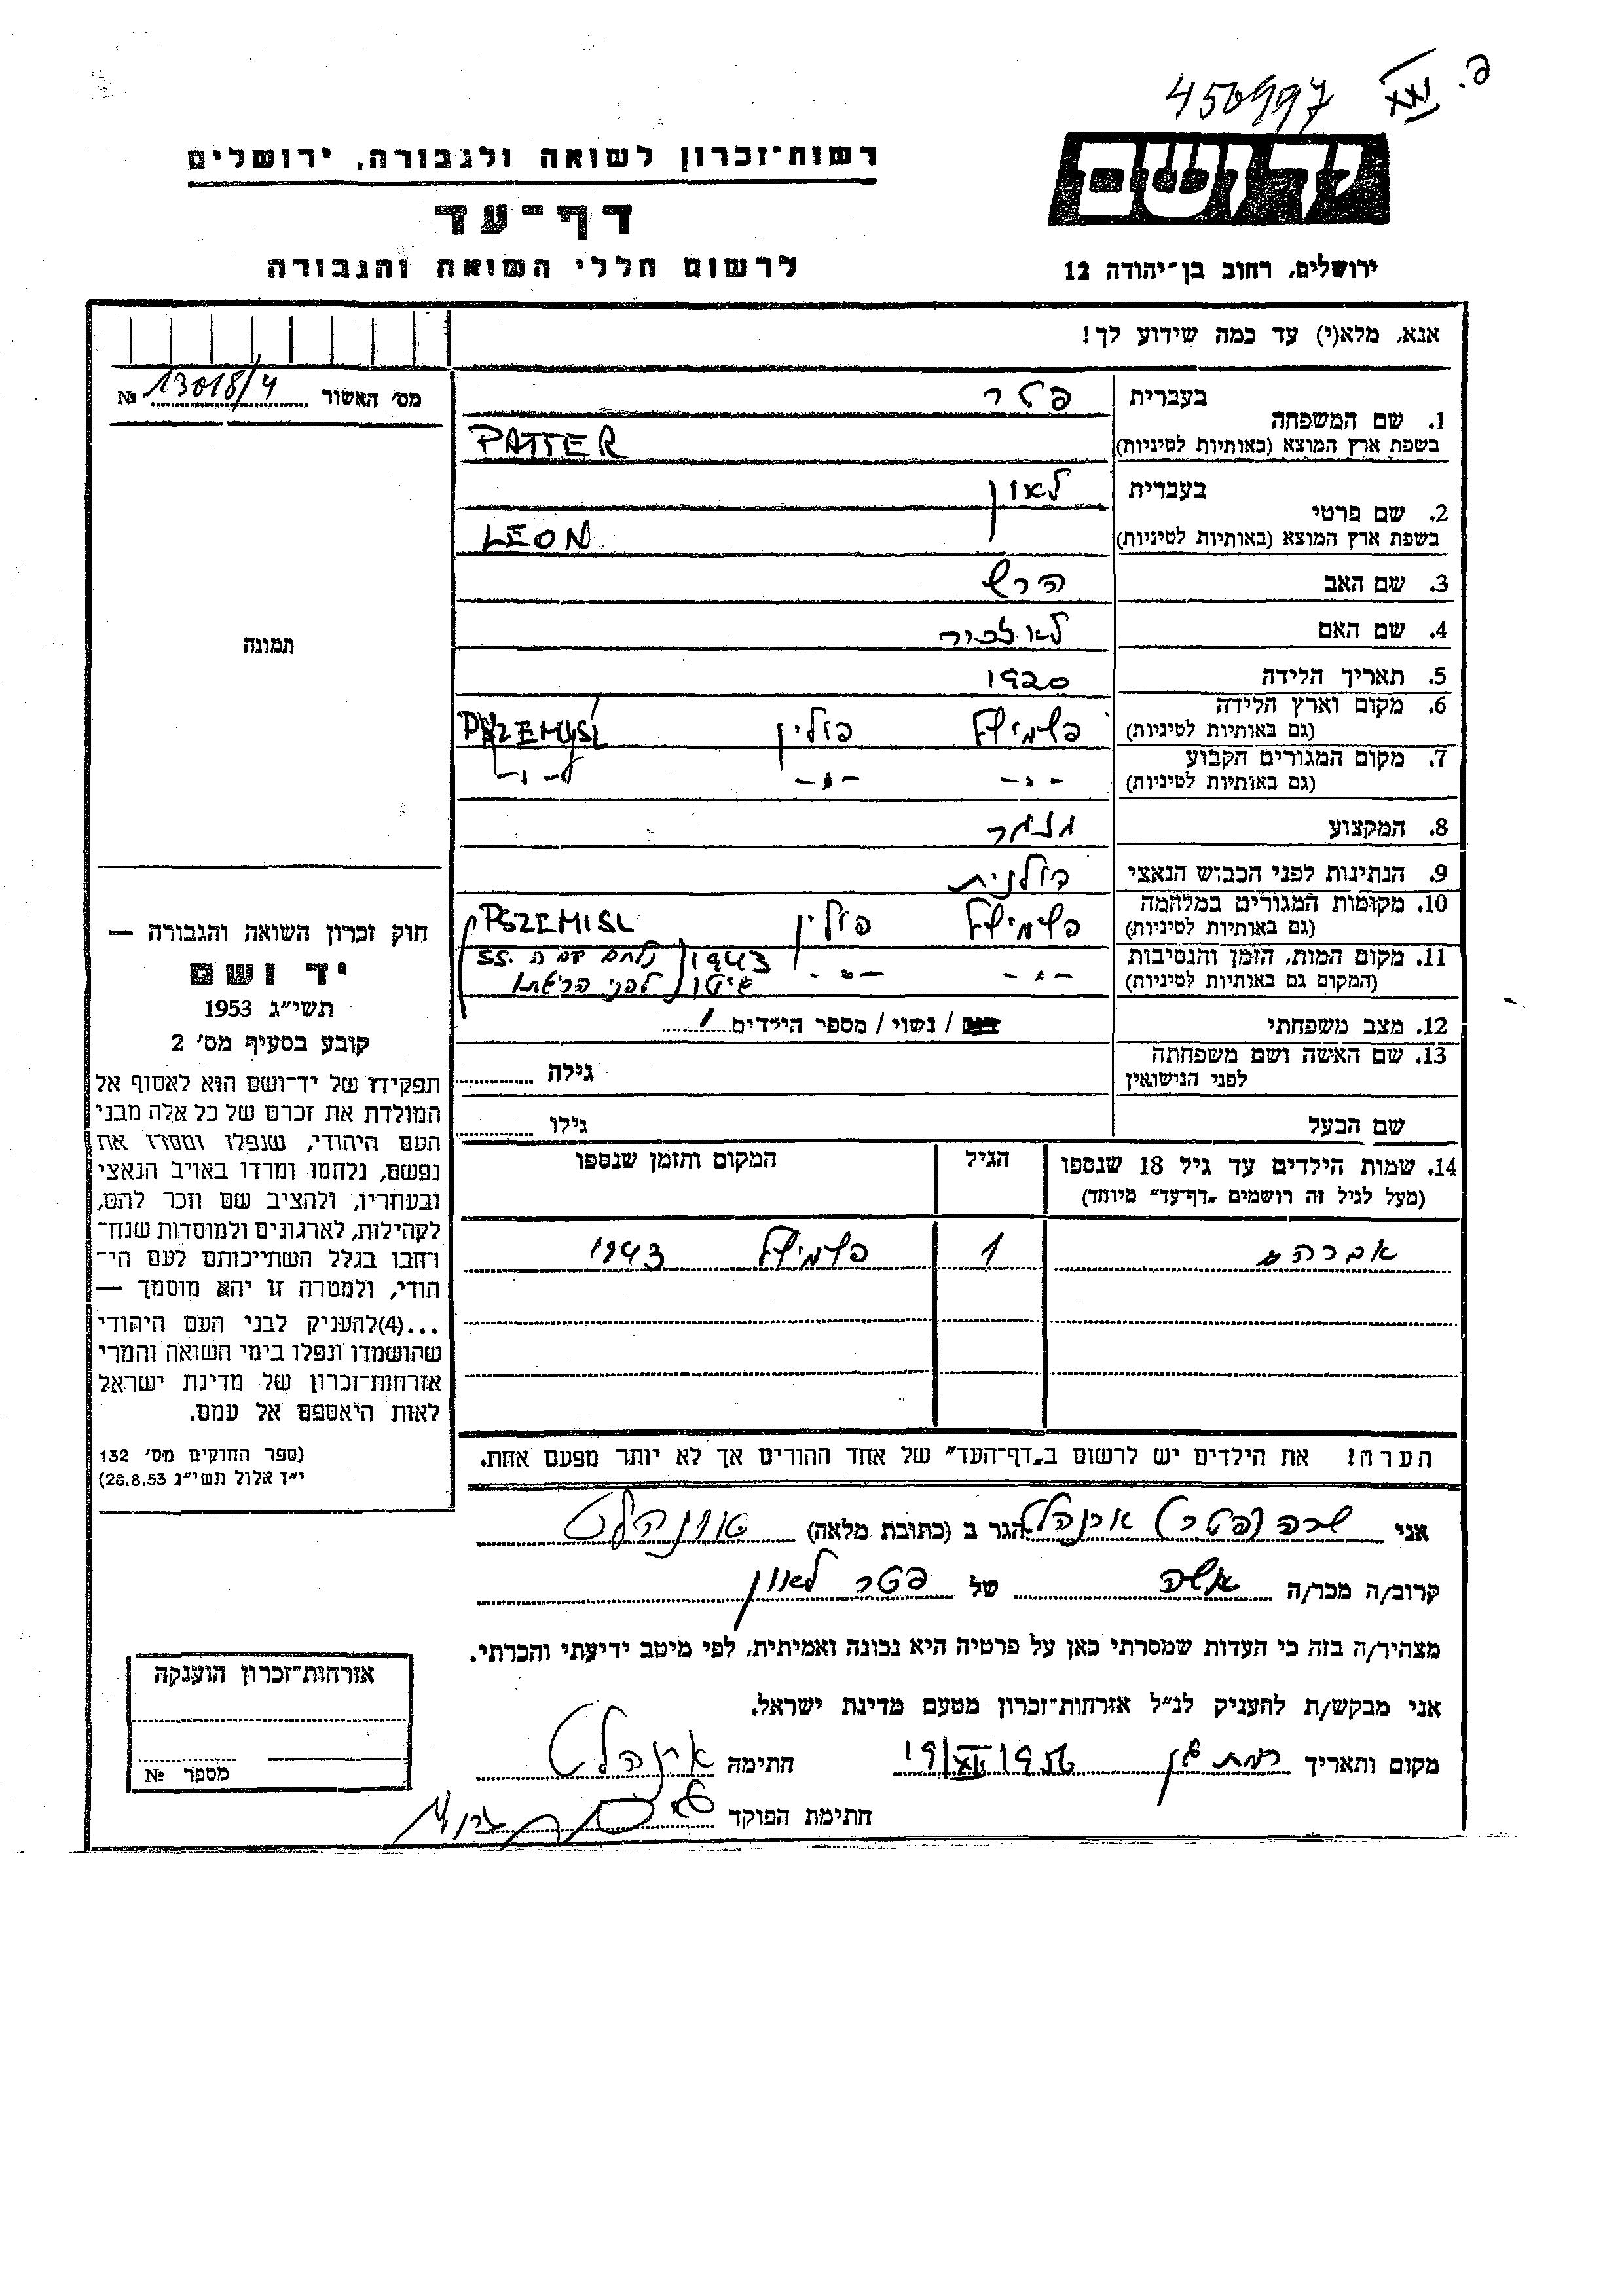 450997
XXVI פ.
יד ושם
רשות־זכרון לשואה ולגבורה, ירושלים
דף־עד
לרשום חללי השואה והגבורה
ירושלים, רחוב בן־יהודה 12
אנא, מלא(י) עד כמה שידוע לך!
מס׳ האשור № 13018/4
1. שם המשפחה בעברית פטר
בשפת ארץ המוצא (באותיות לטיניות) PATTER
2. שם פרטי בעברית לאון
בשפת ארץ המוצא (באותיות לטיניות) LEON
3. שם האב הרש
4. שם האם
5. תאריך הלידה 1920
6. מקום וארץ הלידה (גם באותיות לטיניות) פשמישל פולין
7. מקום המגורים הקבוע (גם באותיות לטיניות) -"- -"- -"-
8. המקצוע
9. הנתינות לפני הכבוש הנאצי פולנית
10. מקומות המגורים במלחמה (גם באותיות לטיניות) פשמישל פולין PSZEMISL
11. מקום המות, הזמן והנסיבות (המקום גם באותיות לטיניות) -"- -"- 1943 נלחם עם ה SS.
לפני
12. מצב משפחתי / נשוי / מספר הילדים 1
13. שם האשה ושם משפחתה לפני הנישואין גילה
שם הבעל גילו
14. שמות הילדים עד גיל 18 שנספו הגיל המקום והזמן שנספו
(מעל לגיל זה רושמים „דף־עד״ מיוחד)
אברהם 1 פשמישל 1943
הערה! את הילדים יש לרשום ב„דף־העד״ של אחד ההורים אך לא יותר מפעם אחת.
תמונה
חוק זכרון השואה והגבורה —
יד ושם
תשי״ג 1953
קובע בסעיף מס׳ 2
תפקידו של יד־ושם הוא לאסוף אל
המולדת את זכרם של כל אלה מבני
העם היהודי, שנפלו ומסרו את
נפשם, נלחמו ומרדו באויב הנאצי
ובעוזריו, ולהציב שם וזכר להם,
לקהילות, לארגונים ולמוסדות שנח־
רבו בגלל השתייכותם לעם הי־
הודי, ולמטרה זו יהא מוסמך —
...(4)להעניק לבני העם היהודי
שהושמדו ונפלו בימי השואה והמרי
אזרחות־זכרון של מדינת ישראל
לאות היאספם אל עמם.
(ספר החוקים מס׳ 132
י״ז אלול תשי״ג 28.8.53)
אני שרה (פטר) הגר ב (כתובת מלאה)
קרוב/ה מכר/ה אשה של פטר לאון
מצהיר/ה בזה כי העדות שמסרתי כאן על פרטיה היא נכונה ואמיתית, לפי מיטב ידיעתי והכרתי.
אני מבקש/ת להעניק לנ״ל אזרחות־זכרון מטעם מדינת ישראל.
מקום ותאריך רמת גן 19/XII 1956 חתימה
חתימת הפוקד
אזרחות־זכרון הוענקה
מספר №